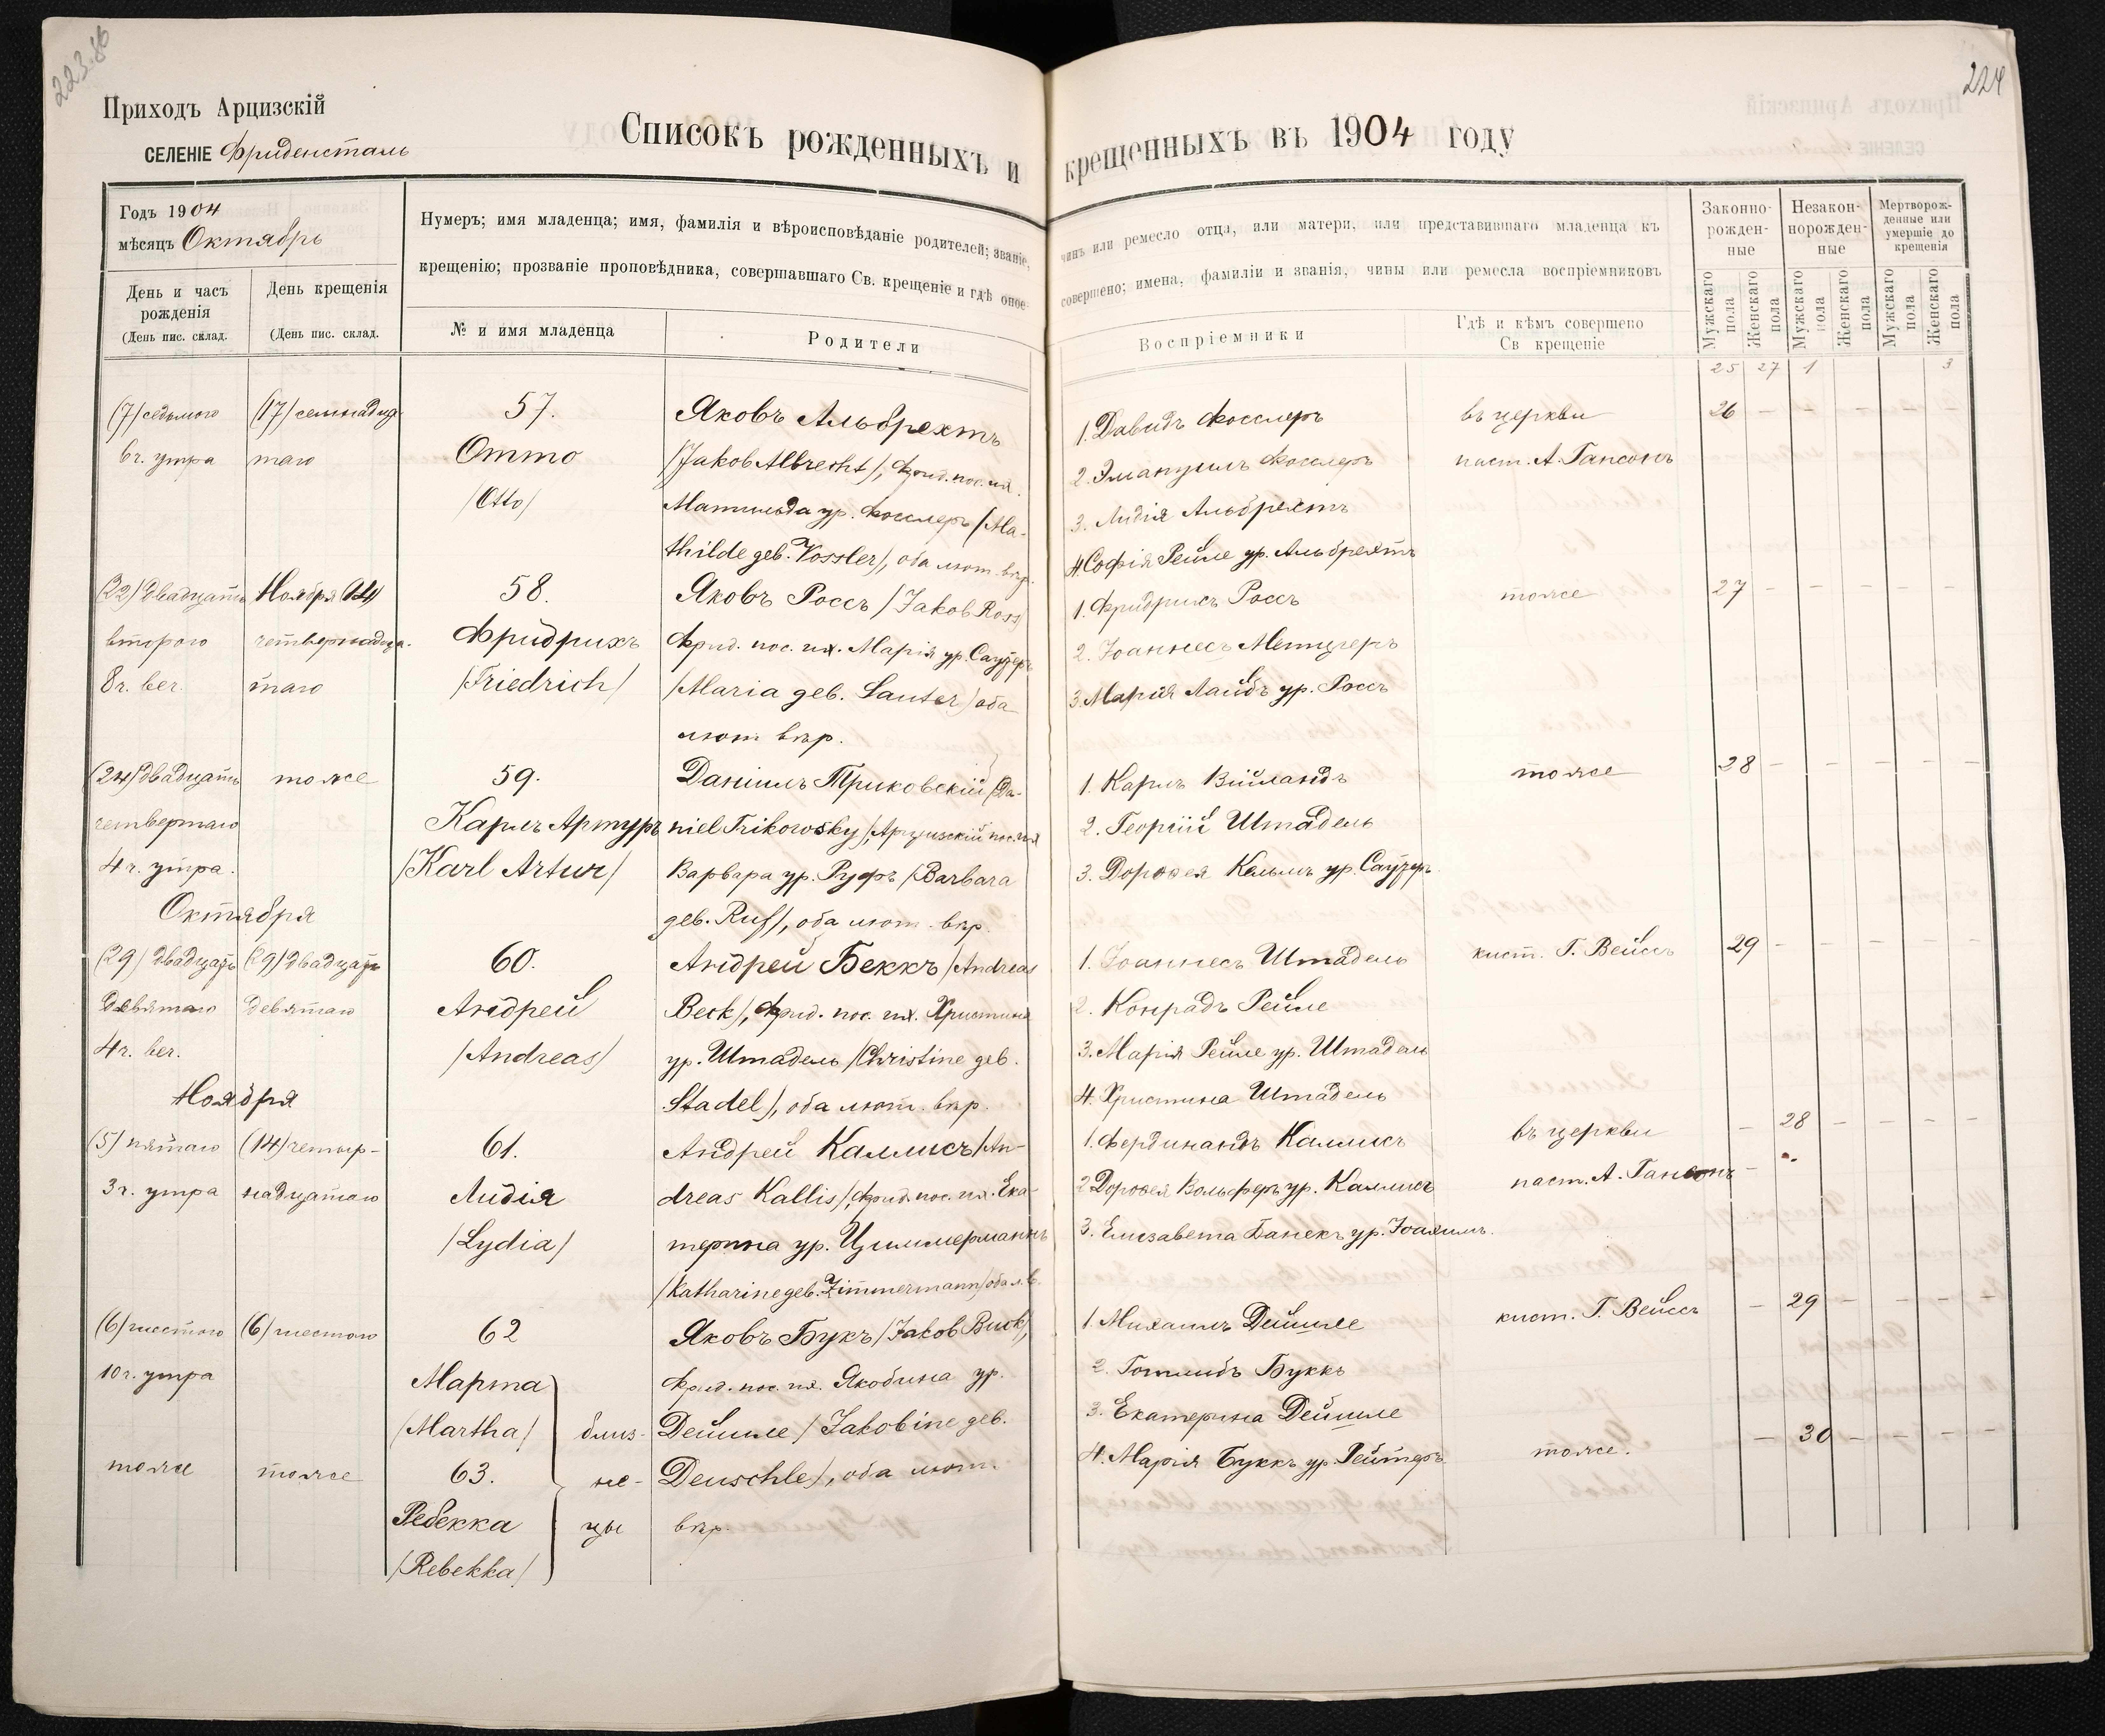 223.86
224
Приходъ Арцизскій
СЕЛЕНІЕ Фриденсталь
Списокъ рожденныхъ и крещенныхъ въ 1904 году
Годъ 1904
мѣсяцъ Октябрь
Нумеръ; имя младенца; имя, фамилія и вѣроисповѣданіе родителей; званіе,
чинъ или ремесло отца, или матери, или представившаго младенца къ
крещенію; прозваніе проповѣдника, совершавшаго Св. крещеніе и гдѣ оное
совершено; имена, фамиліи и званія, чины или ремесла воспріемниковъ
Законно-
рожден-
ные
Незакон-
норожден-
ные
Мертворож-
денные или
умершіе до
крещенія
День и часъ
рожденія
(День пис. склад.
День крещенія
(День пис. склад.
№ и имя младенца
Родители
Воспріемники
Гдѣ и кѣмъ совершено
Св крещеніе
Мужскаго пола
Женскаго пола
Мужскаго пола
Женскаго пола
Мужскаго пола
Женскаго пола
25 27 1 3
(7) седьмого
6 ч. утра
(17) семнадца-
таго
57.
Отто
/Otto/
Яковъ Альбрехтъ
/Jakob Albrecht/, Фрид. пос. пх.
Матильда ур. Фосслеръ /Ma-
thilde geb. Vossler/, оба лют. вѣр.
1. Давидъ Фосслеръ
2. Эмануилъ Фосслеръ
3. Лидія Альбрехтъ
4. Софія Рейле ур. Альбрехтъ
въ церкви
паст. А. Гансонъ
26 – – – – –
(22) двадцать
второго
8 ч. веч.
Ноября (14)
четвернадца-
таго
58.
Фридрихъ
/Friedrich/
Яковъ Россъ /Jakob Ross/
Фрид. пос. пх. Марія ур. Саутеръ
/Maria geb. Sauter/ оба
лют вѣр.
1. Фридрихъ Россъ
2. Іоаннесъ Метцгеръ
3. Марія Лайбъ ур. Россъ
тоже
27 – – – – –
(24) двадцать
четвертаго
4 ч. утра.
тоже
59.
Карлъ Артуръ
/Karl Artur/
Даніилъ Триковскій /Da-
niel Trikowsky/, Арцизскій пос. пх
Варвара ур. Руфъ /Barbara
geb. Ruf/, оба лют. вѣр.
1. Карлъ Вейландъ
2. Георгій Штадель
3. Доровея Кельмъ ур. Саутеръ
тоже
28 – – – – –
Октября
(29) двадцать
девятаго
4 ч. веч.
(29) двадцать
девятаго
60.
Андрей
/Andreas/
Андрей Беккъ /Andreas
Beck/, Фрид. пос. пх. Христина
ур. Штадель /Christine geb.
Stadel/, оба лют. вѣр.
1. Іоаннесъ Штадель
2. Конрадъ Рейле
3. Марія Рейле ур. Штадель
4. Христина Штадель
кист. Г. Вейссъ
29 – – – – –
Ноября
(5) пятаго
3 ч. утра
(14) четыр-
надцатаго
61.
Лидія
/Lydia/
Андрей Каллисъ /An-
dreas Kallis/, Фрид. пос. пх. Ека-
терина ур. Циммерманнъ
/Katharine geb. Zimmermann/ оба л. в.
1. Фердинандъ Каллисъ
2 Доровея Вольферъ ур. Каллисъ
3. Елизавета Банекъ ур. Іоахимъ.
въ церкви
паст. А. Гансонъ
– 28 – – – –
(6) шестого
10 ч. утра
(6) шестого
62
Марта
/Martha/
тоже
тоже
63.
Ребекка
/Rebekka/
близ-
не-
цы
Яковъ Букъ /Jakob Buck/,
Фрид. пос. пх. Якобина ур.
Дейшле /Jakobine geb.
Deuschle/, оба лют.
вѣр.
1. Михаилъ Дейшле
2. Готлибъ Буккъ
3. Екатерина Дейшле
4. Марія Буккъ ур. Рейтеръ
кист. Г. Вейссъ
– 29 – – – –
тоже.
– 30 – – – –